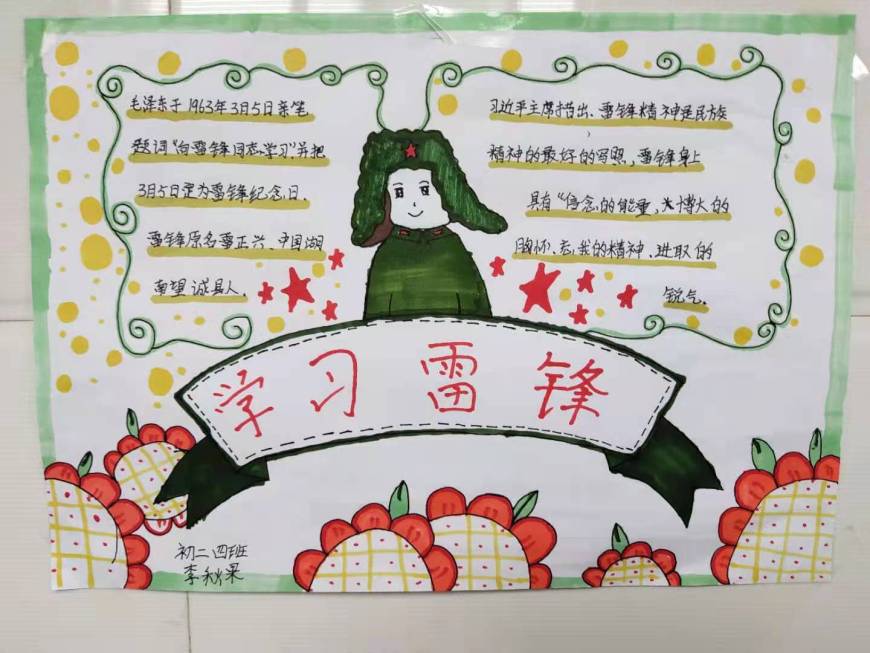 毛泽东于1963年3月5日亲笔
题词“向雷锋同志学习”并把
3月5日定为雷锋纪念日.
雷锋原名雷正兴、中国湖
南望城县人.
习近平主席指出、雷锋精神是民族
精神的最好的写照,雷锋身上
具有“信念的能量,大博大的
胸怀、忘我的精神、进取的
锐气.
学习雷锋
初二四班
李秋果